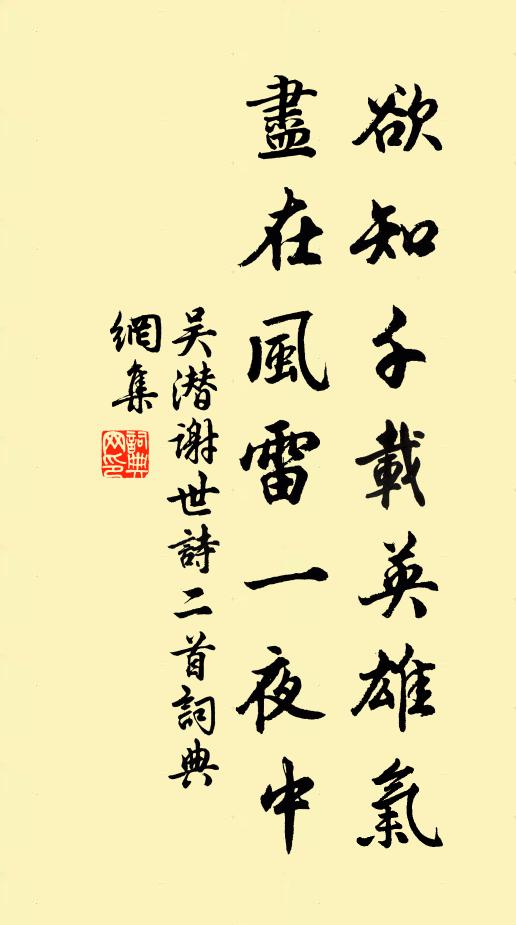 欲知千載英雄氣
盡在風雷一夜中
吴潛谢世詩二首詞典
網集
詞典網印